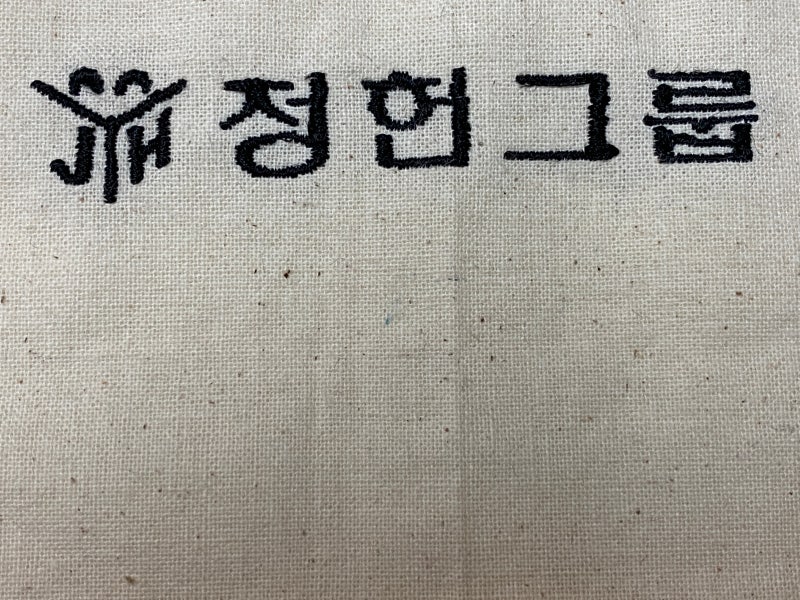 JH 정헌그룹